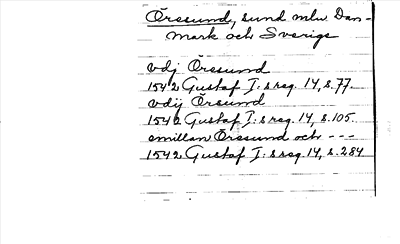 Öresund, sund mlw Dan-
mark och Sverige
vdj Öresund
1542 Gustaf I:s reg. 14, s. 77.
vdij Örsund
1542 Gustaf I:s reg. 14, s. 105.
emillan Öressund och ---
1542 Gustaf I:s reg. 14, s. 284